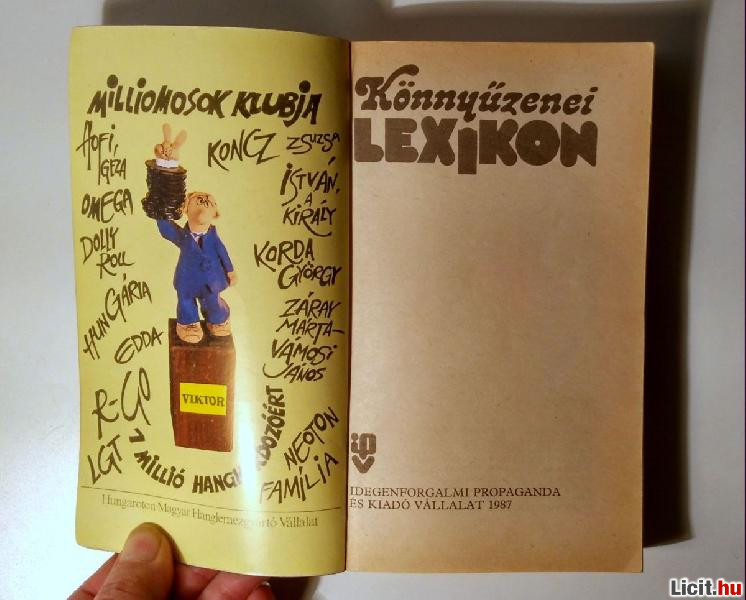 MILLIOMOSOK KLUBJA
HOFI
GÉZA
OMEGA
DOLLY
ROLL
HUNGÁRIA
EDDA
R-GO
LGT
KONCZ ZSUZSA
ISTVÁN,
A
KIRÁLY
KORDA
GYÖRGY
ZÁRAY
MÁRTA-
VÁMOSI
JÁNOS
NEOTON
FAMÍLIA
VIKTOR
MILLIÓ
Hungaroton Magyar Hanglemezgyártó Vállalat
Könnyűzenei
LEXIKON
IDEGENFORGALMI PROPAGANDA
ÉS KIADÓ VÁLLALAT 1987
Licit.hu